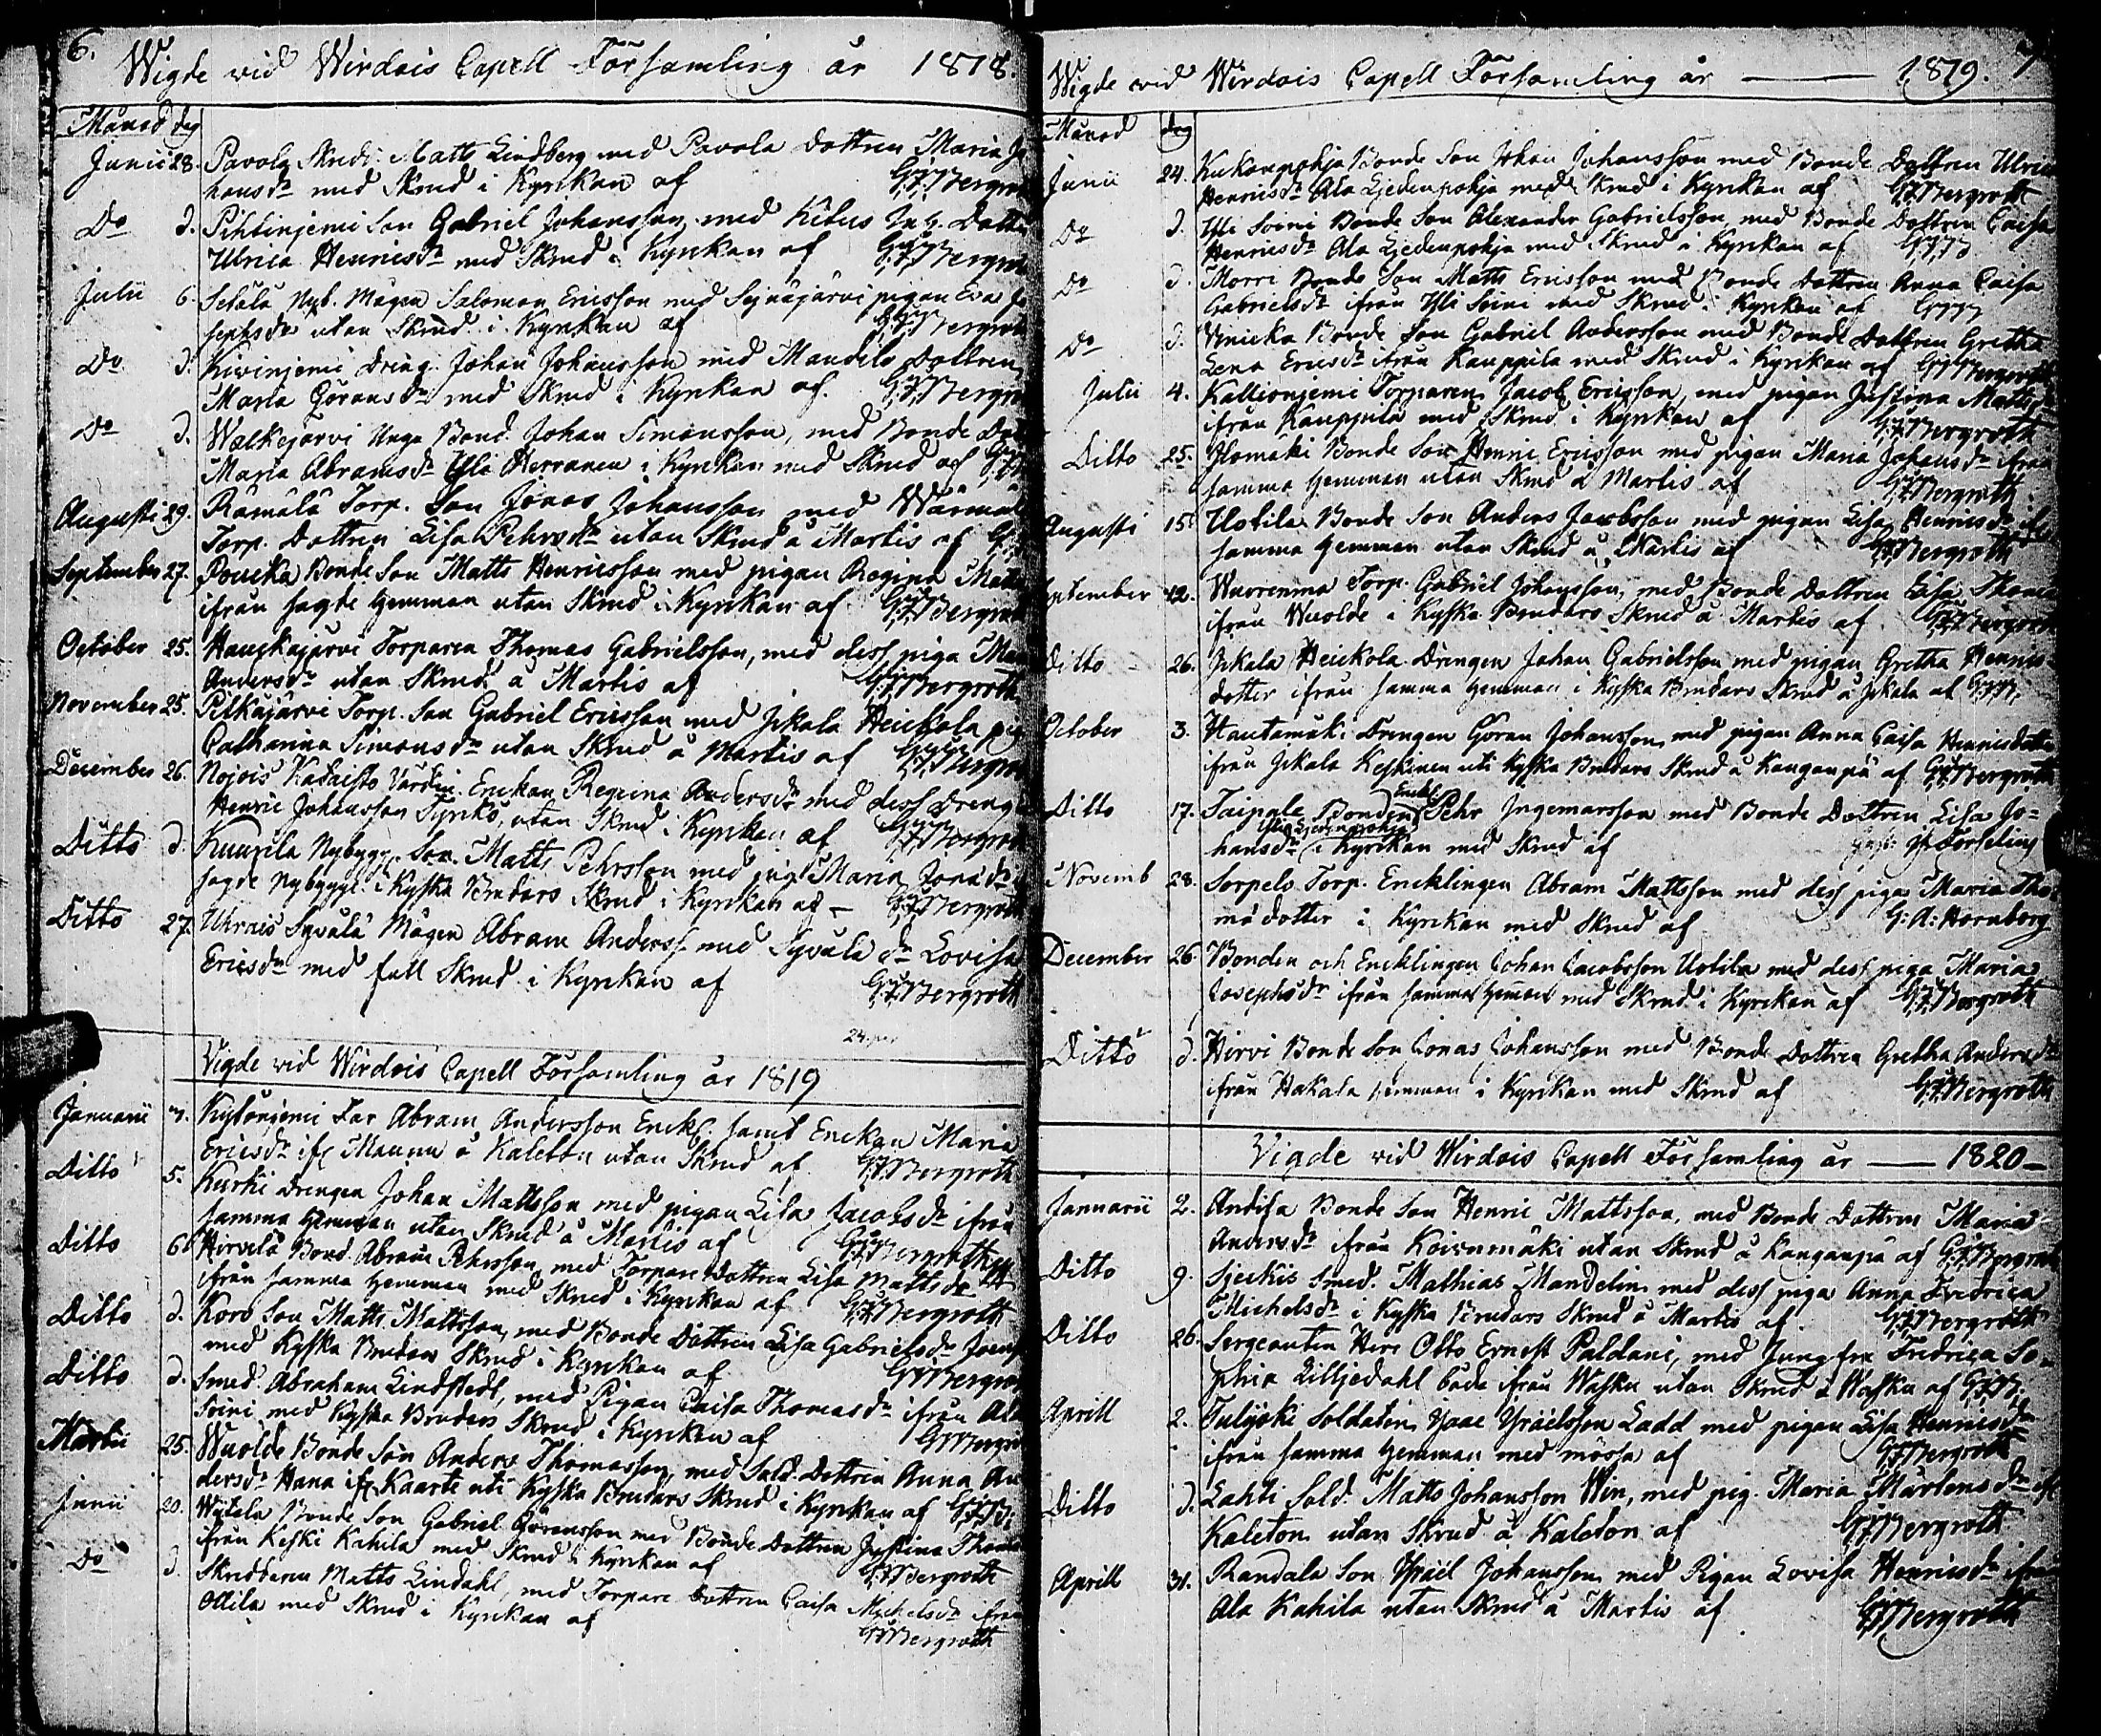 6.
Wigde vid Wirdois Capell Församling år 1818.
Månad dag
Junii 28. Pavola Skrädd. Matts Lindberg med Pavola Dottren Maria Jo
hansdr med Skrud i Kyrkan af G:F:Bergroth
Do d. Pihlinjemi Son Gabriel Johansson, med Dottr
Ulrica Henricsdr med Skrud i Kyrkan af G:F:Bergroth
Julii 6. Setälä Nyb. Mågen Salomon Ericsson med pigan Eva Jo
sephsdr utan Skrud i Kyrkan af G:F:Bergroth
Do d. Kivinjemi Dräng. Johan Johansson med Mandelo Dottren
Maria Göransdr med Skrud i Kyrkan af G:F:Bergro
Do d. Wälkejärvi Unga Bond. Johan Simonsson, med Bonde Do
Maria Abramsdr Yli Herranen i Kyrkan med Skrud af
Augusti 29. Rämälä Torp. Son Jonas Johansson med Wärmäl
Torp. Dottren Lisa Pehrsdr utan Skrud å Martis af G:
September 27. Poucka Bonde Son Matts Henricsson med pigan Regina Matts
ifrån sagde Hemman utan Skrud i Kyrkan af G:F:Bergroth
October 25. Haugkajärvi Torparen Thomas Gabrielsson, med dess piga Ma
Andersdr utan Skrud å Martis af G:F:Bergroth
November 25. Pitkäjärvi Torp. Son Gabriel Ericsson med Jäkälä Heickola pig
Catharina Simonsdr utan Skrud å Martis af G:F:Bergro
December 26. Kataisto Enckan Regina Andersdr med dess Dreng
Henric Johansson Tynkö, utan Skrud i Kyrkan af G:F:Bergroth
Ditto d. Kuupila Nybygg. Son Matts Pehrsson med pig. Maria Jonsdr
sagde Nybygge i Kyska Brudars Skrud i Kyrkan af G:F:Bergroth
Ditto 27. Uhrais Syvälä Mågen Abram Anderss. med Syvälä dr Lovisa
Ericsdr med full Skrud i Kyrkan af G:F:Bergroth
24 par
Vigde vid Wirdois Capell Församling år 1819
Januarii Kytönjemi Far Abram Andersson Enckl. samt Enckan Maria
Ericsdr ifr. Maunu å Kaleton utan Skrud af G:F:Bergroth
Ditto 5. Kurki Drengen Johan Mattsson med pigan Lisa Jacobsdr ifrån
samma Hemman utan Skrud å Martis af G:F:Bergroth
Ditto 6 Hirvelä Bond. Abram Pehrsson med Torpare Dottren Lisa Mattsdr
ifrån samma Hemman med Skrud i Kyrkan af G:F:Bergroth
Ditto d. Koro Son Matts Mattsson, med Bonde Dottren Lisa Gabrielsdr
med Kyska Brudars Skrud i Kyrkan af G:F:Bergrot
Ditto d. Smed. Abraham Lindstedt, med Pigan Caisa Thomasdr ifrån Ala
Soini med Kyska Brudars Skrud i Kyrkan af G:F:Bergro
Martii 25. Wuolde Bonde Son Anders Thomasson, med Sold. Dottren Anna An
dersdr Hana ifr. Kaarte uti Kyska Brudars Skrud i Kyrkan af G:F:B:
Junii 20. Bonde Son Gabriel Göransson med Bonde Dottren Justina Thoma
ifrån Keski Kahila med Skrud i Kyrkan af G:F:Bergroth
Do d. Skreddaren Matts Lindahl, med Torpare Dottren Caisa Michelsdr ifrån
Ollila med Skrud i Kyrkan af G:F:Bergroth
7
Wigde vid Wirdois Capell Församling år — 1819.
Månad dag
Junii 24. Kukonpohja Bonde Son Johan Johansson med Bonde Dottren Ulrica
Henricsdr Ala Ljedenpohja med Skrud i Kyrkan af G:F:Bergroth
Do d. Yli Soini Bonde Son Alexander Gabrielsson, med Bonde Dottren Caisa
Henricsdr Ala Ljedenpohja med Skrud i Kyrkan af G:F:B
Do d. Morri Bonde Son Matts Ericsson med Bonde Dottren Anna Caisa
Gabrielsdr ifrån Yli Soini med Skrud i Kyrkan af G:F:B
Do d. Bonde Son Gabriel Andersson med Bonde Dottren Gretha
Lena Ericsdr ifrån Kauppila med Skrud i Kyrkan af G:F:Bergroth
Julii 4. Kallionjemi Torparen Jacob Ericsson, med pigan Justina Mattsdr
ifrån Kauppila med Skrud i Kyrkan af G:F:Bergroth
Ditto 25. Ylömäki Bonde Son Henric Ericsson med pigan Maria Johansdr ifrån
samma Hemman utan Skrud å Martis af G:F:Bergroth
Augusti 15. Uotila Bonde Son Anders Jacobsson med pigan Lisa Henricsdr ifr
samma Hemman utan Skrud å Martis af G:F:Bergroth
September 12. Wuorenma Torp. Gabriel Johansson, med Bonde Dottren Lisa Thoma
ifrån Wuolde i Kyska Brudars Skrud å Martis af G:F:Bergroth
Ditto 26. Jäkälä Heickola Drengen Johan Gabrielsson med pigan Gretha Henrics-
dotter ifrån samma Hemman i Kyska Brudars Skrud å Jäkälä af G:F:B.
October 3. Hautamäki Drengen Göran Johansson, med pigan Anna Caisa Henricsdotter
ifrån Jäkälä Keskinen uti Kyska Brudars Skrud å Kanganpä af G:F:Bergroth
Ditto 17. Taipale Bonden Enckl. Pehr Ingemarsson med Bonde Dottren Lisa Jo-
hansdr Yli Ljedenpohja i Kyrkan med Skrud af Forselius
Novemb 28. Sorpels Torp. Encklingen Abram Mattsson med dess piga Maria Tho-
mä dotter i Kyrkan med Skrud af G:A:Hornborg
December 26. Bonden och Encklingen Johan Jacobsson Uotila med dess piga Maria
Josephsdr ifrån samma Hemman med Skrud i Kyrkan af G:F:Bergroth
Ditto d. Hirvi Bonde Son Jonas Johansson med Bonde Dottren Gretha Andersdr
ifrån Hakala Hemman i Kyrkan med Skrud af G:F:Bergroth
Vigde vid Wirdois Capell Församling år — 1820 —
Januarii 2. Andisa Bonde Son Henric Mattsson, med Bonde Dottren Maria
Andersdr ifrån Koivumäki utan Skrud å Kanganpä af G:F:Bergroth
Ditto 9. Sjeckis Smed. Mathias Mandelin med dess piga Anna Fredrica
Michelsdr i Kyska Brudars Skrud å Martis af G:F:Bergroth
Ditto 26. Sergeanten Herr Otto Ernst Paldani, med Jungfru Fredrica So-
phia Lilljedahl båda ifrån Wasku utan Skrud å Wasku af G:F:B.
Aprill 2. Tulijoki Soldaten Isaac Ysraelsson Ladd med pigan Lisa Henricsdr
ifrån samma Hemman med mössa af G:F:Bergroth
Ditto d. Lahti Sold. Matts Johansson Win, med pig. Maria Mårtensdr ifr
Kaleton utan Skrud å Kaleton af G:F:Bergroth
Aprill 31. Randala Son Ysraël Johansson med Pigan Lovisa Henricsdr ifrån
Ala Kahila utan Skrud å Martis af G:F:Bergroth